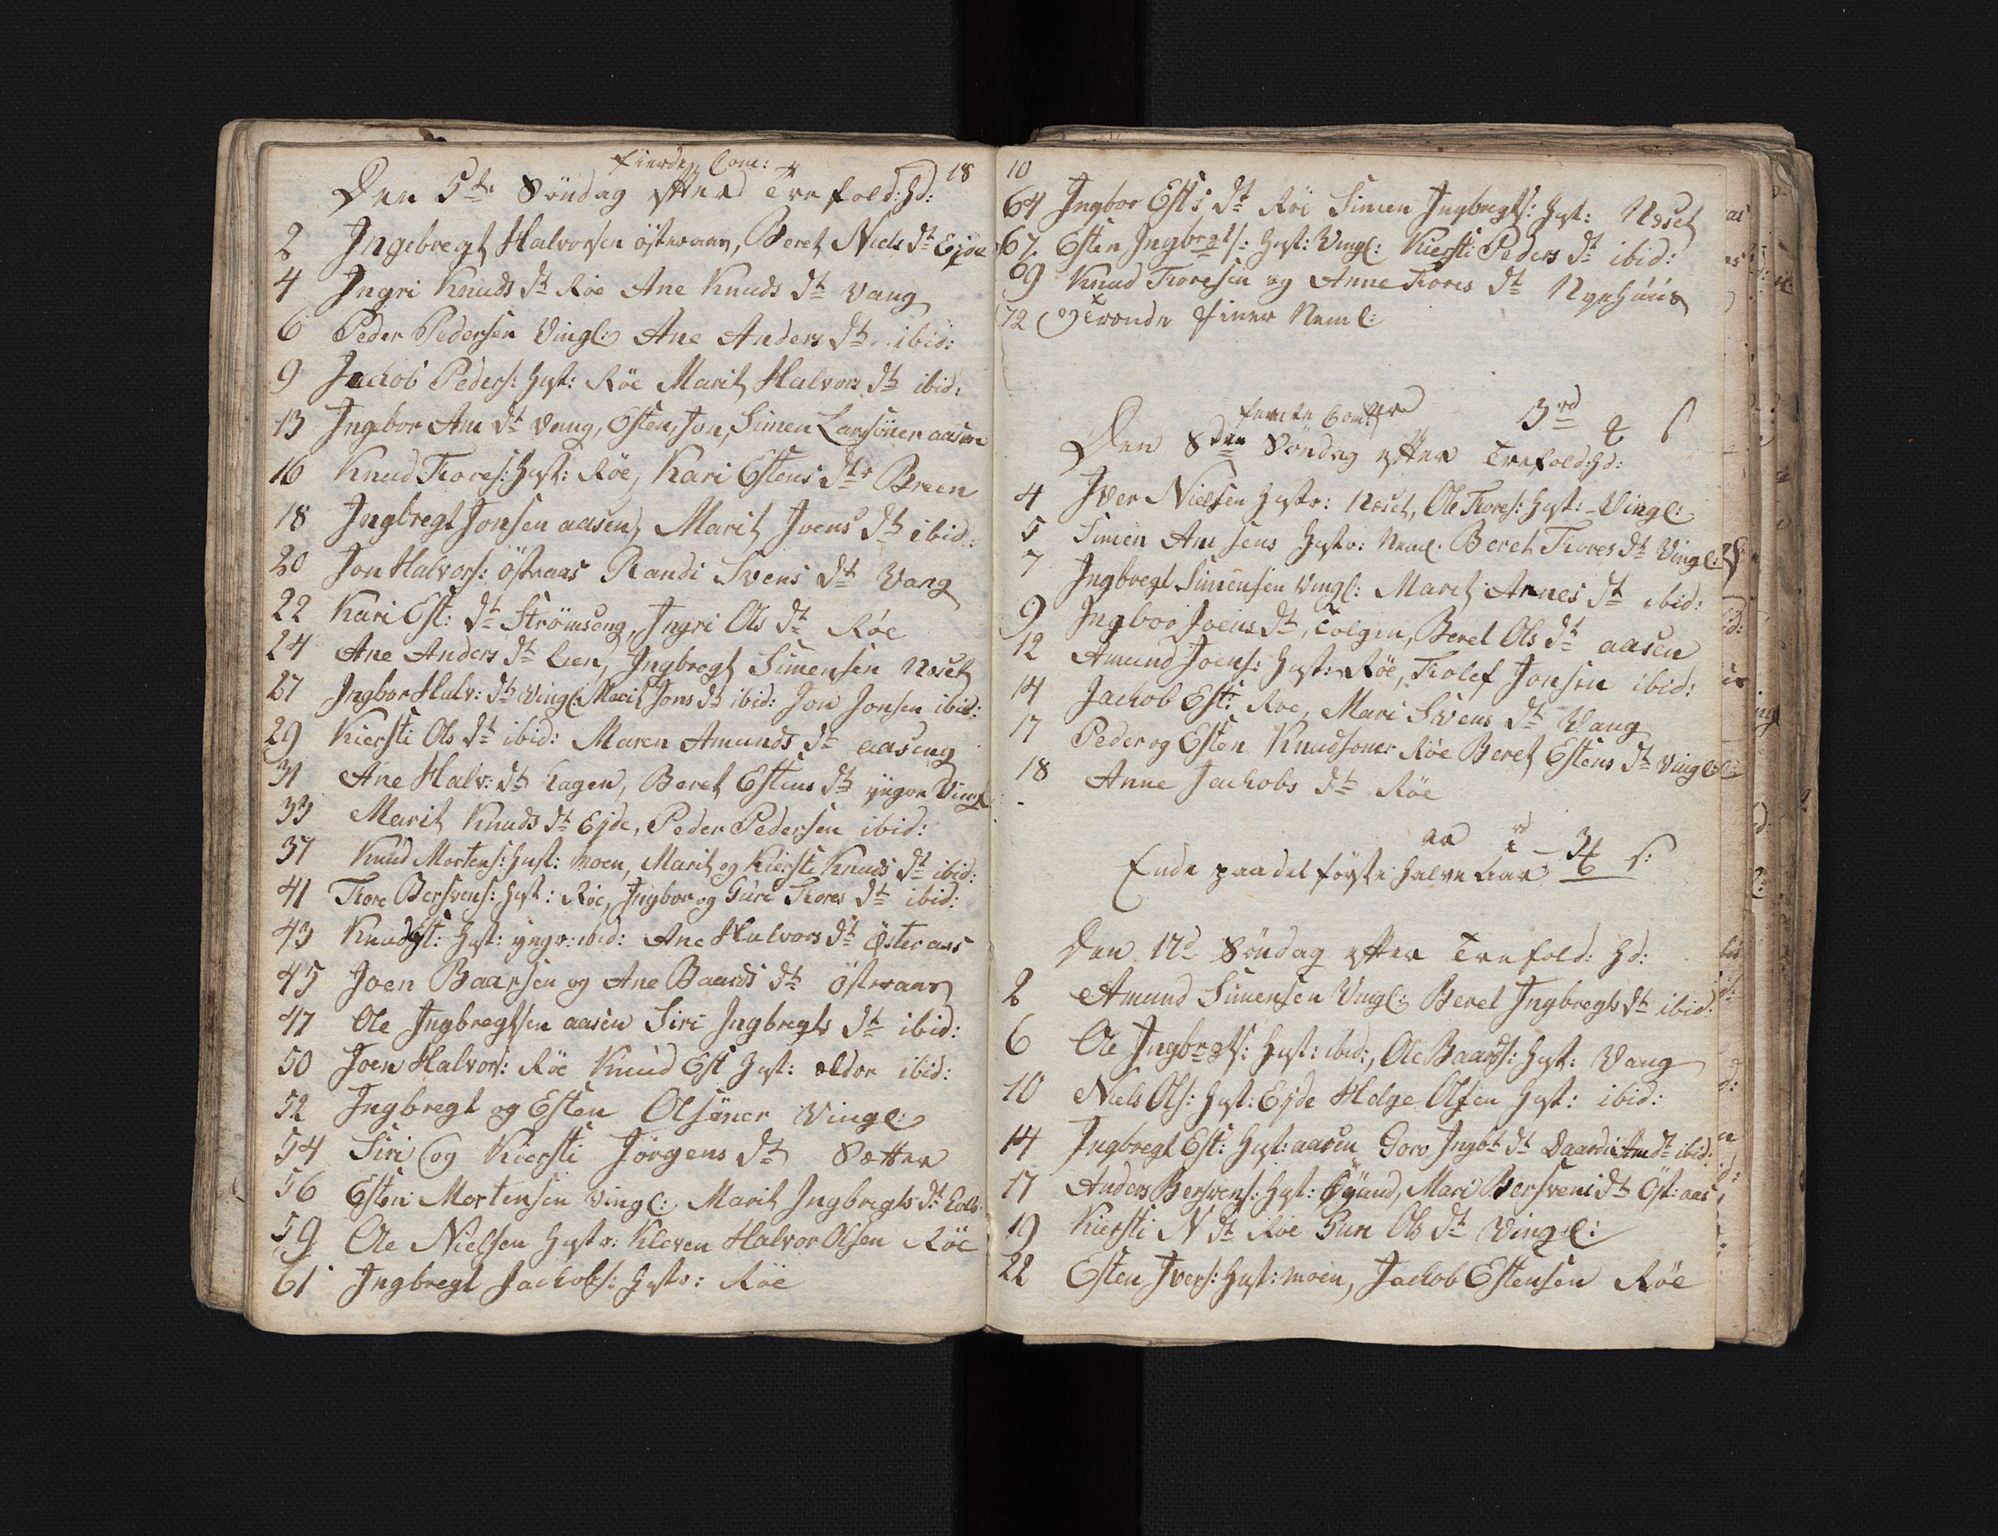 fierde Com: 4
18
Den 5te Söndag efter Trefold: hd:
2 Ingebregt Halvorsen österaas, Beret Niels dt Ejde
4 Ingri Knuds dt Röe Ane Knuds dt Vang
6 Peder Pedersen Vingl: Ane Anders dt ibid:
9 Jachob Peders: Hust: Röe Marit Halvors dt ibid:
13 Ingebor Am dt Vang, Esten, Jon, Simen Larsöner aasen
16 Knud Tores: Hust: Röe, Kari Estens dtr Breen
18 Ingbregt Jonsen aasen, Marit Joens dt ibid:
20 Jon Halvors: östaas Randi Svens dt Vang
22 Kari Est: dt Strömseng, Ingri Ols dt Röe
24 Ane Anders dt Lien, Ingbregt Simensen Noset
27 Ingbor Halv: dt Vingl: Marit Jons dt ibid: Jon Jonsen ibid:
29 Kiersti Ols dt ibid: Maren Amunds dt aaseng
31 Ane Halv: dt hagen, Beret Estens dt yngre Vingl
33 Marit Knuds dt Ejde, Peder Pedersen ibid:
37 Knud Mortens: Hust: moen, Marit og Kiersti Knuds dt ibid:
41 Tore Bersvens: Hust: Röe, Ingbor og Guri Tores dt ibid:
43 Knud Est: Hust: yngr: ibid: Ane Halvors dt Österaas
45 Joen Baarsen og Ane Baards dt österaas
47 Ole Ingbregtsen aasen Siri Ingbregts dt ibid:
50 Joen Halvors: Röe Knud Est Hust: eldre ibid:
52 Ingbregt og Esten Olsöner Vingl:
54 Siri og Kiersti Jörgens dt Sætter
56 Esten Mortensen Vingl: Marit Ingbregts dt
59 Ole Nielsen Hustr: Kleven Halvor Olsen Röe
61 Ingbregt Jachobs: Hustr: Röe
10
64 Ingbor Est: dt Röe Simen Ingbregts: Hust: Noset
67 Esten Ingbregts: Hust: Vingl: Kiersti Peders dt ibid:
69 Knud Toresen og Anne Tores dt Nyehuus
72 og Tronde finer Neml:
femte Com
3 rd 2 s
Den 8den Söndag efter Trefold: hd:
4 Iver Nielsen Hustr: Noset, Ole Tores: Hust: Vingl:
5 Simen Am sens Hustr: Neml: Beret Tores dt Vingl:
7 Ingbregt Simensen Vingl: Marit Arnes dt ibid:
9 Ingbor Joens dt, Tolgen, Beret Ols dt aasen
12 Amund Joens: Hust: Röe, Tolef Jonsen ibid:
14 Jachob Est: Röe, Mari Svens dt Vang
17 Peder og Esten Knudsoner Röe Beret Estens dt Vingl:
18 Anne Jachobs dt Röe
er rd
Ende paa det förste halve aar
Den 17d Söndag efter Trefold: hd:
2 Amund Simensen Vingl: Beret Ingbregts dt ibid:
6 Ole Ingbregts: Hust: ibid:, Ole Baards: Hust: Vang
10 Niels Ols: Hust: Ejde Helge Olsen Hust: ibid:
14 Ingbregt Est: Hust: aasen Goro Ingb: dt Am dt ibid:
17 Anders Bersvens: Hust: Mari Bersvens dt Öst: aas
19 Kiersti N dt Röe Guri Ols dt Vingl:
22 Esten Ivers: Hust: moen, Jachob Estensen Röe